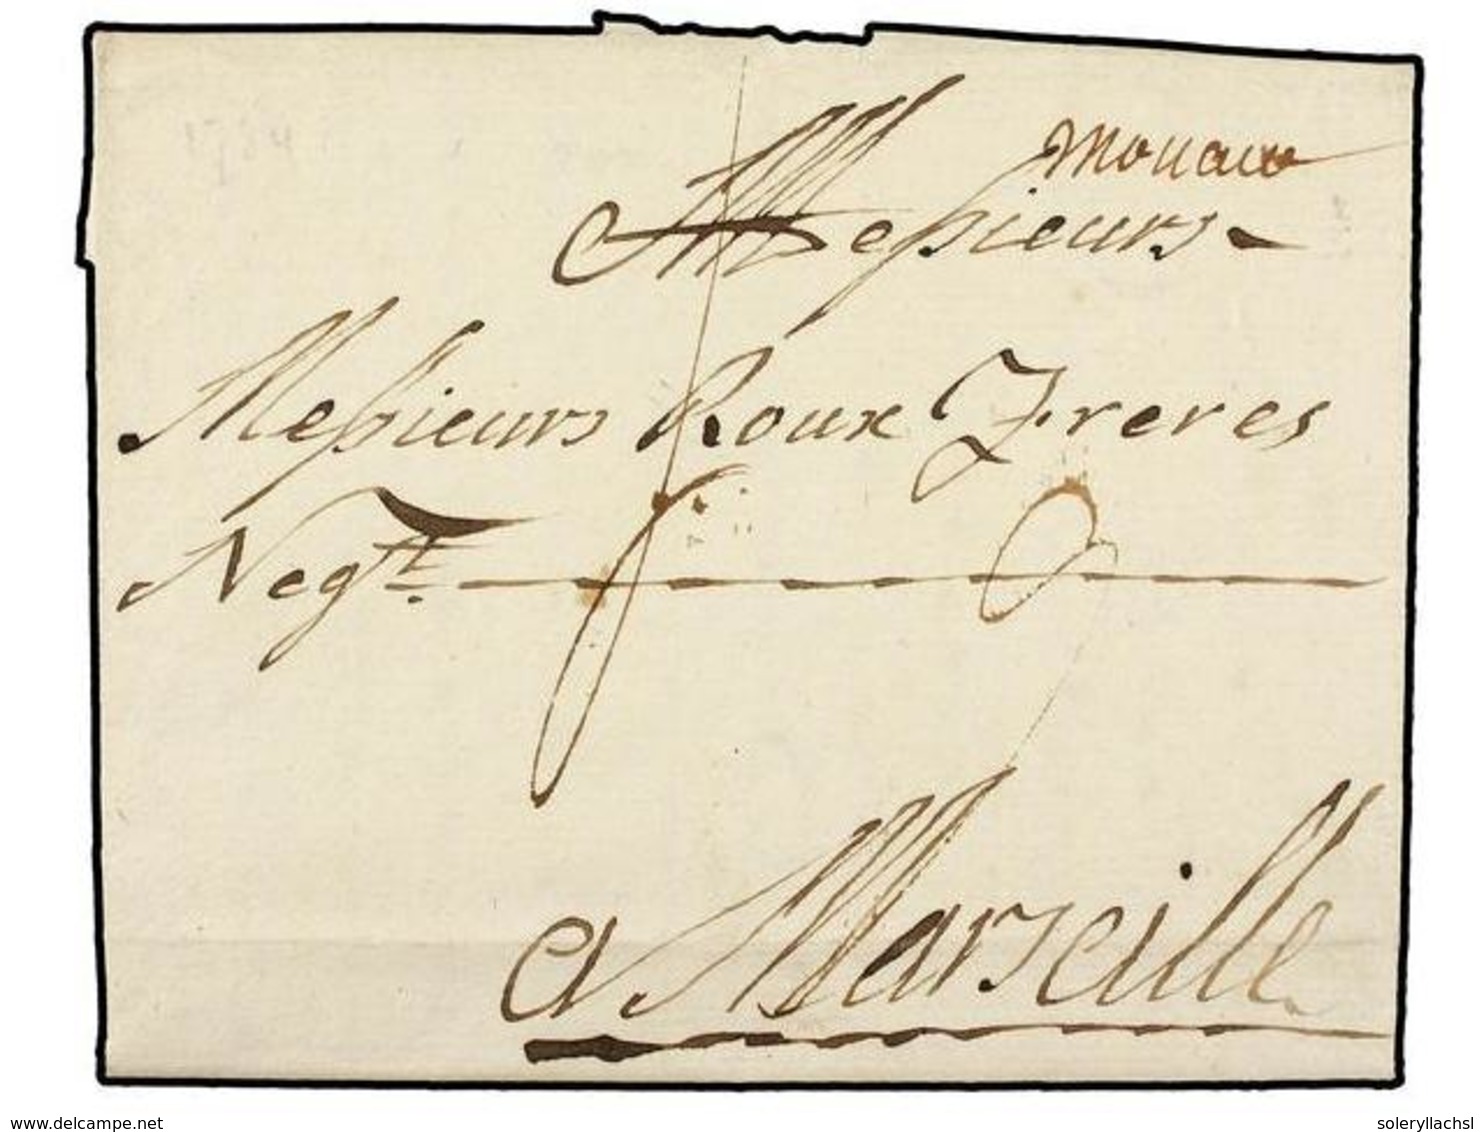 Monaco
Messieurs
Messieurs Roux Freres
Negt.
a Marseille
www.delcampe.net
soleryllachsl